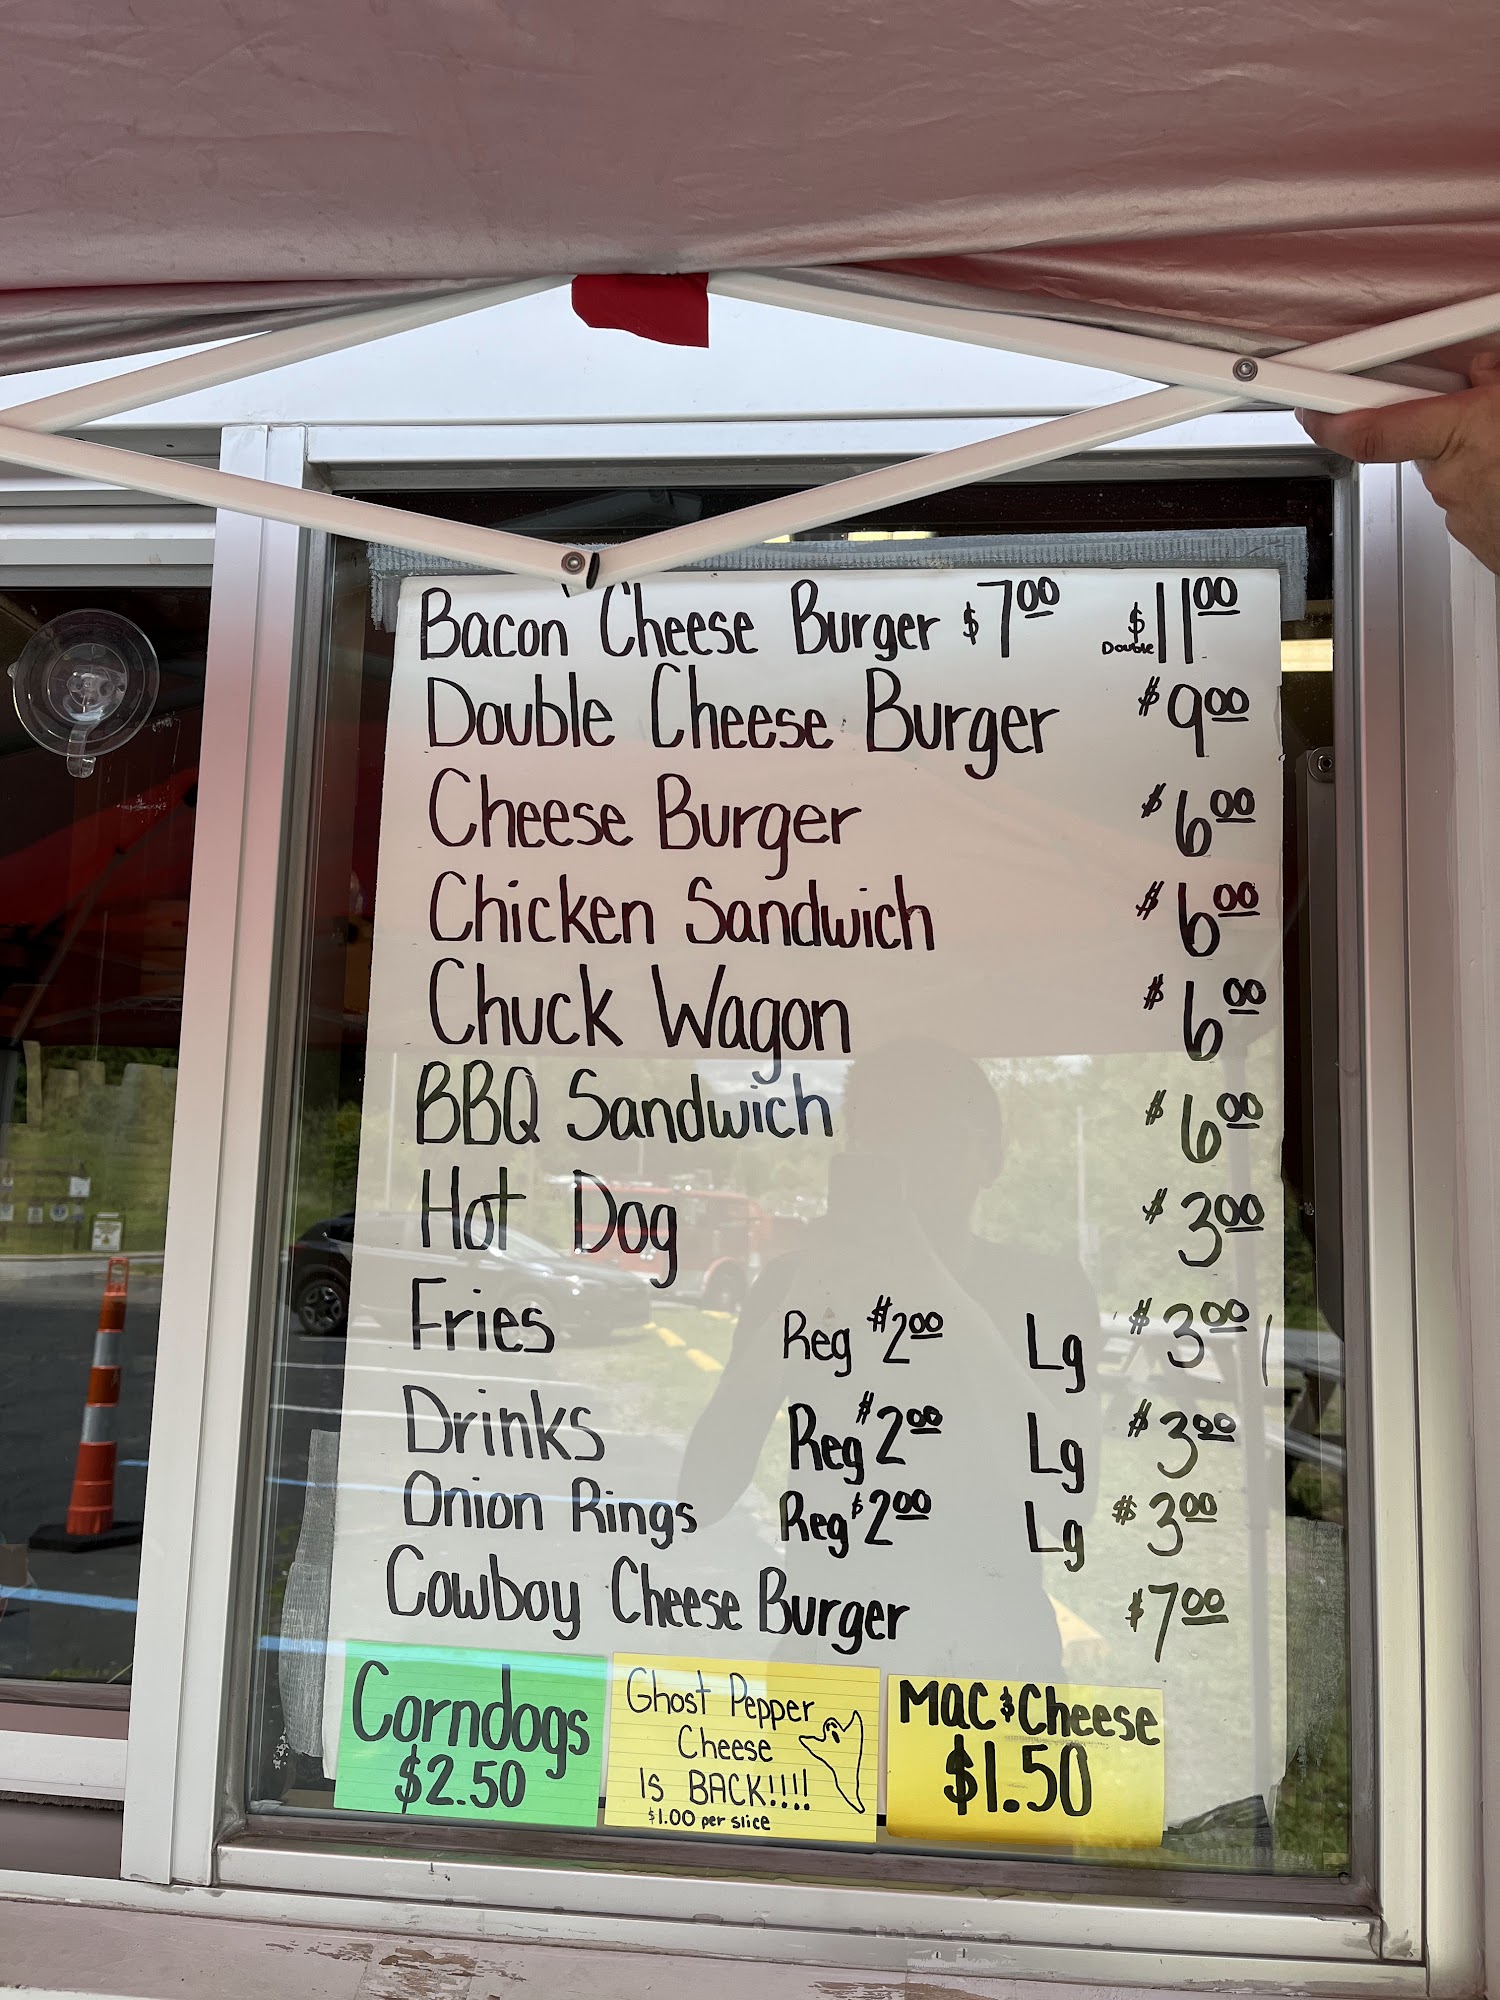 Bacon Cheese Burger $7.00 $11.00 Double
Double Cheese Burger $9.00
Cheese Burger $6.00
Chicken Sandwich $6.00
Chuck Wagon $6.00
BBQ Sandwich $6.00
Hot Dog $3.00
Fries Reg $2.00 Lg $3.00
Drinks Reg $2.00 Lg $3.00
Onion Rings Reg $2.00 Lg $3.00
Cowboy Cheese Burger $7.00
Corndogs
$2.50
Ghost Pepper
Cheese
Is BACK!!!!
$1.00 per slice
Mac & Cheese
$1.50